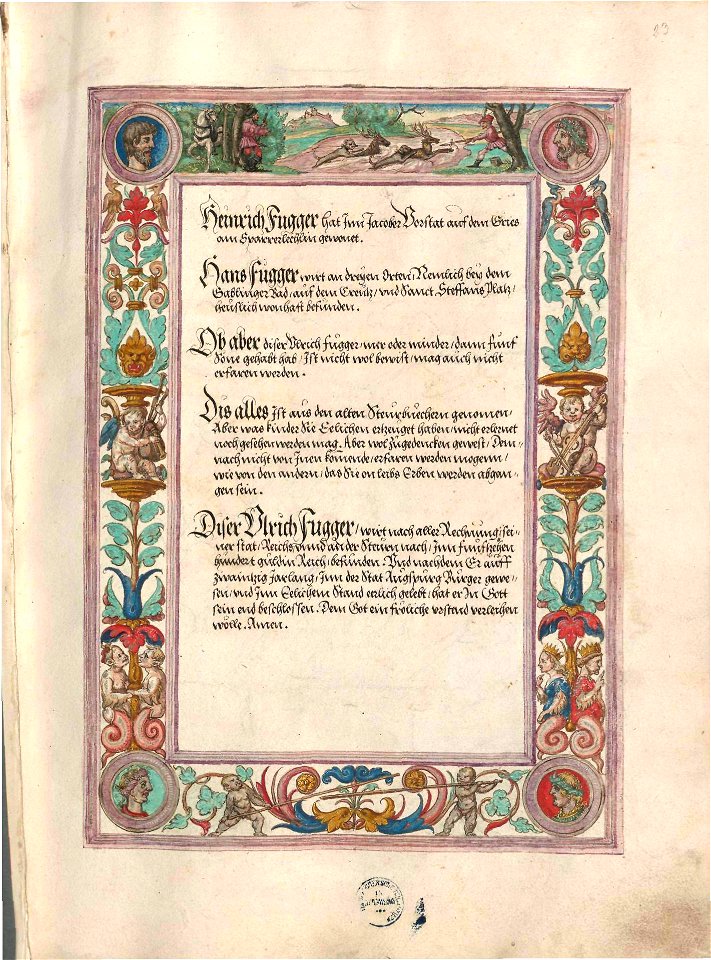 23
Heinrich Fugger hat Inn Jacober Vorstat auf dem Gries
am Sparrerlechlin gewonet.
Hans Fugger wirt an dreyen Orten / Nemlich bey dem
Gablinger Bad / auf dem Creutz / vnd Sanct Steffans Platz /
heuslich wonhaft befunden.
Ob aber diser Vlrich Fugger / mer oder minder / dann funf
Söne gehabt hab / Ist nicht wol bewist / mag auch nicht
erfaren werden.
Dis alles Ist aus den alten Steurbuechern genomen /
Aber was kinder Sie Eelichen ertzeuget haben / nicht erlernet
noch gesehen werden mag. Aber wol zugedencken gewest / Dem-
nach nicht von Inen komende / erfaren werden mogenn /
wie von den andern / das Sie on leibs Erben werden abgan-
gen sein.
Diser Vlrich Fugger / wirt nach aller Rechnung / sei-
ner stat / Reichs und an der Steuren nach / Inn funfzehen
hundert guldin Reich / befunden. Vnd nachdem Er auff
zwaintzig Jar lang / Inn der Stat Augspurg Burger gewe-
sen / vnd Inn Eelichem Stand erlich gelebt / hat er In Gott
sein end beschlossen. Dem Got ein fröliche vrstand verleihen
wölle. Amen.